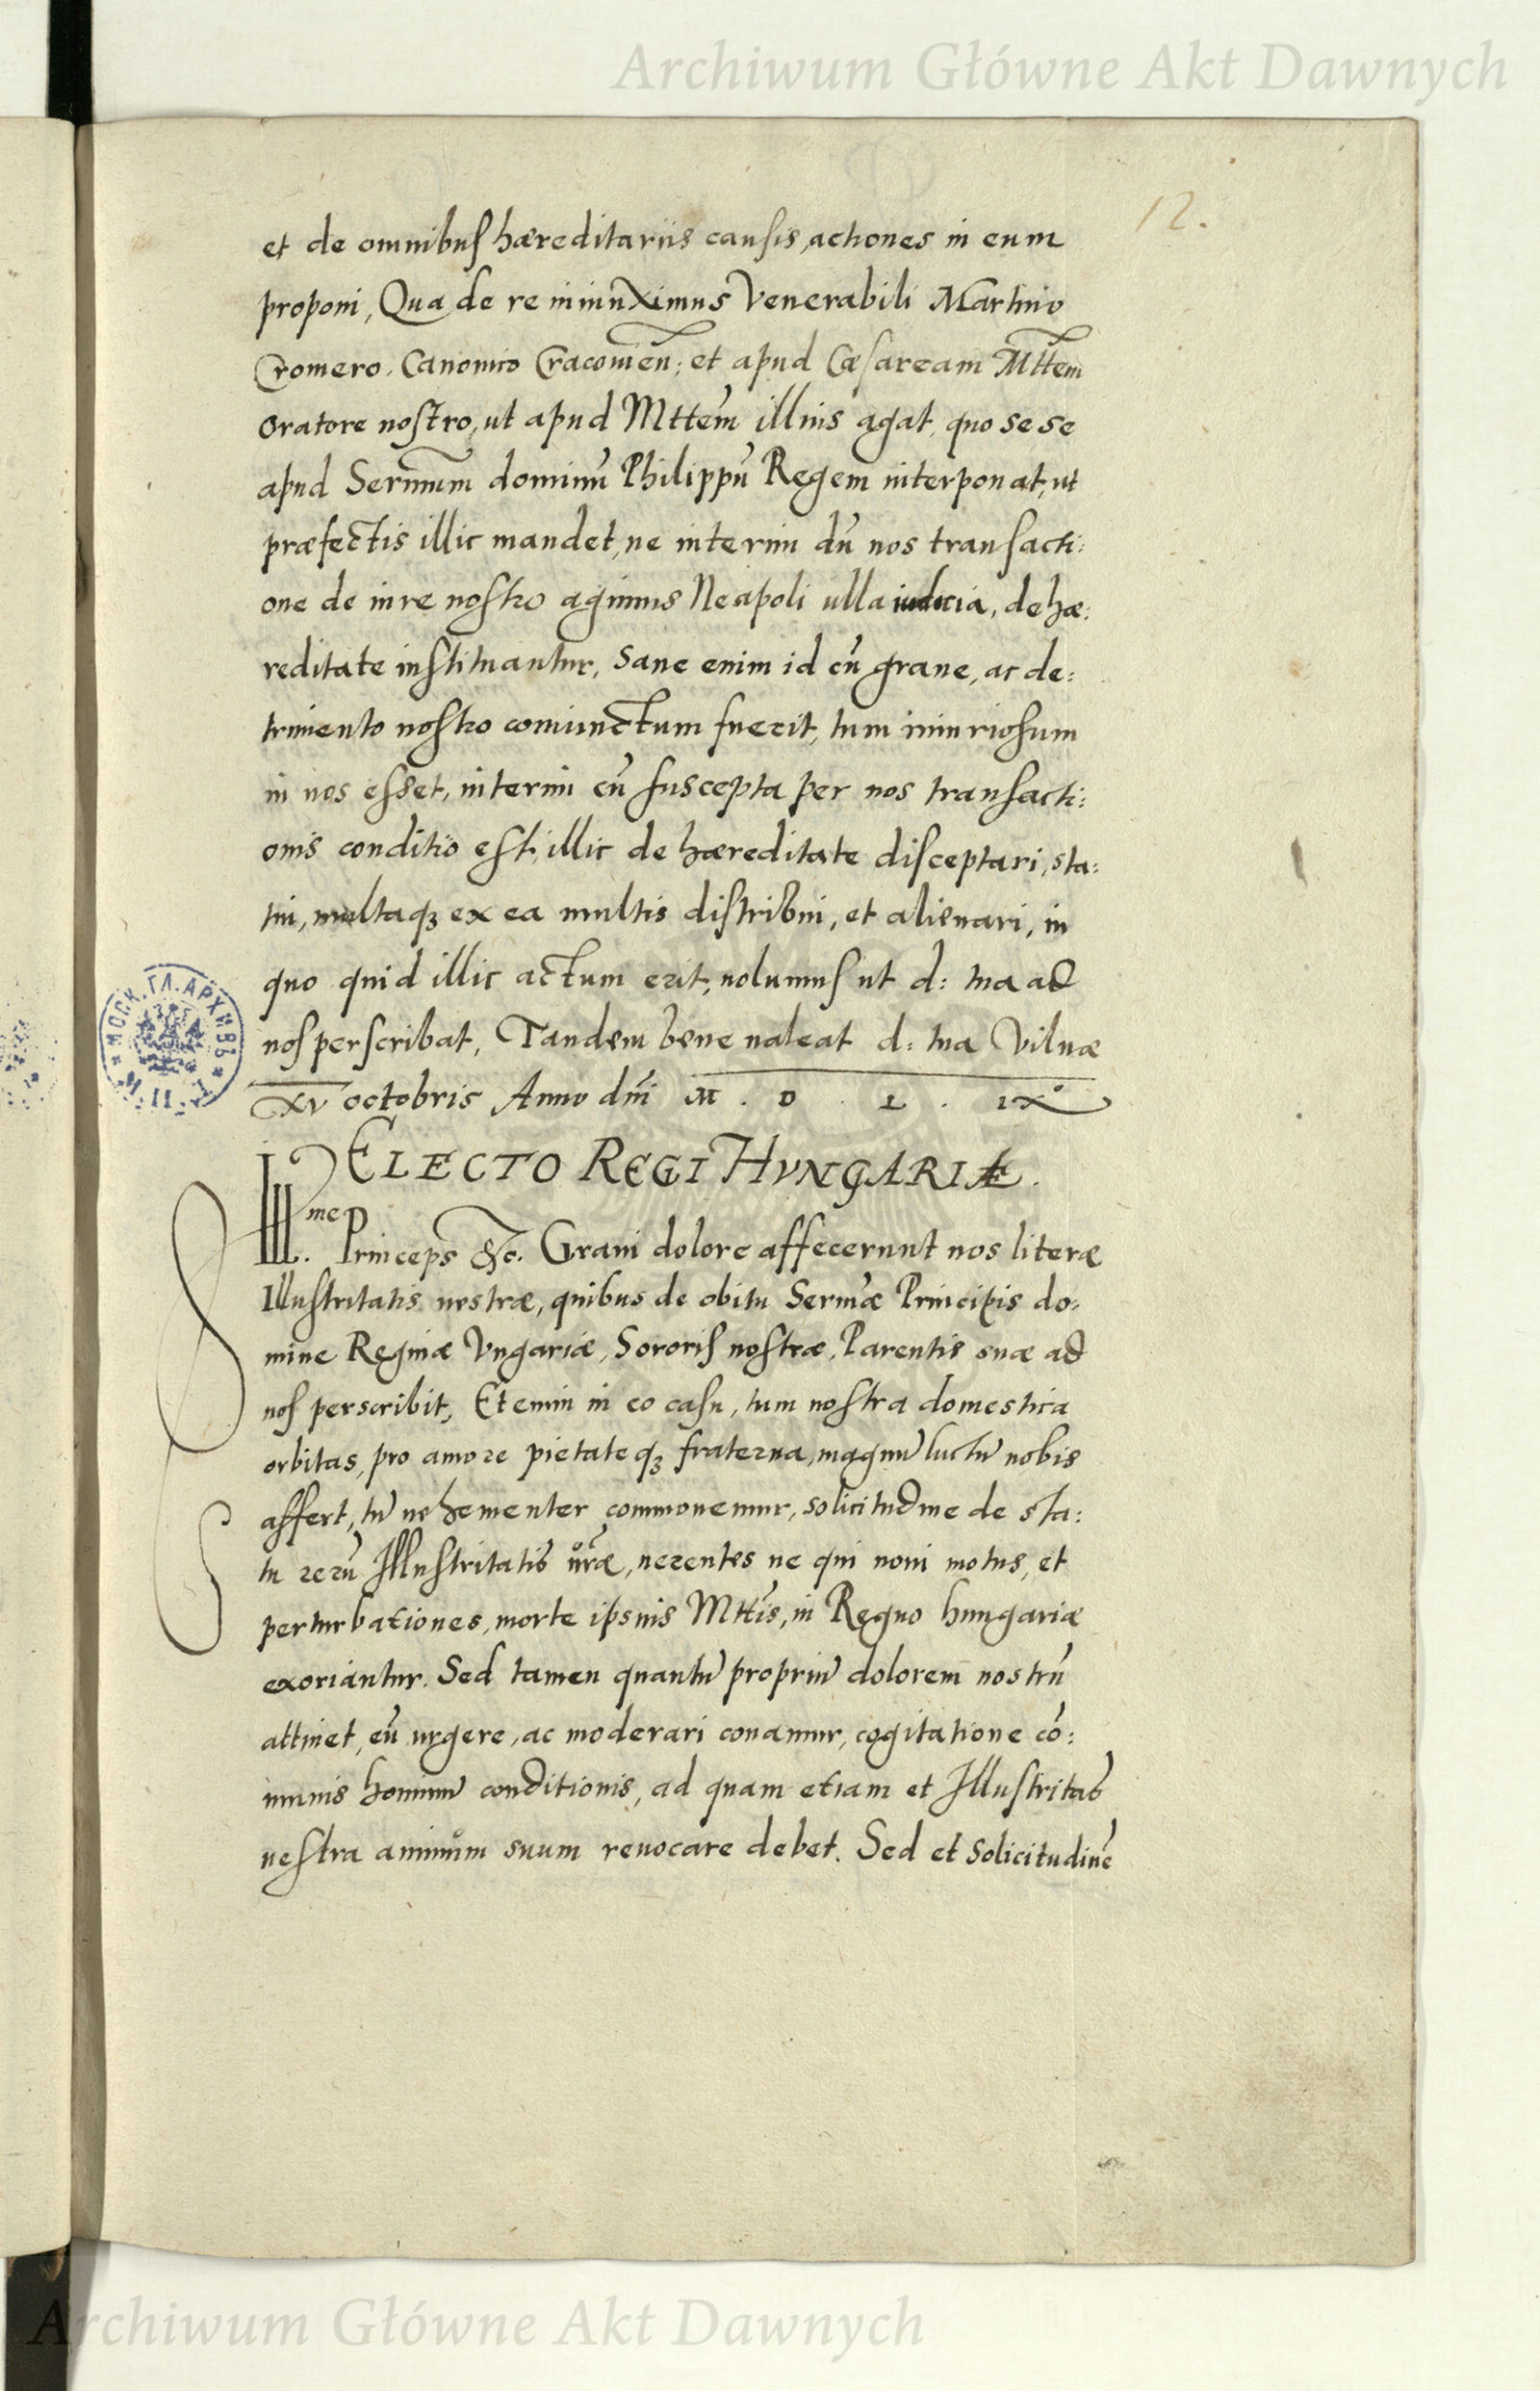 Archiwum Główne Akt Dawnych
12.
et de omnibus hæreditariis causis, actiones in eum
proponi, Qua de re iniunximus Venerabili Martino
Cromero. Canonico Cracouien: et apud Cæsaream Mttem
oratore nostro, ut apud Mttem illius agat, quo sese
apud Sermum dominū Philippū Regem interponat, ut
præfectis illic mandet, ne interim dū nos transacti:
one de iure nostro agimus Neapoli ulla iudicia, de hæ:
reditate instituantur, Sane enim id cū graue, ac de:
trimento nostro coniunctum fuerit, tum iniuriosum
in nos esset, interim cū suscepta per nos transacti:
onis conditio est, illic de hæreditate disceptari, sta:
tui, multaqꝫ ex ea multis distribui, et alienari, in
quo quid illic actum erit, uolumus ut d: tua ad
nos perscribat, Tandem bene ualeat d: tua Vilnæ
XV octobris Anno dni M . D . L . IX°
ELECTO REGI HVNGARIÆ.
Illme Princeps &c. Graui dolore affecerunt nos literæ
Illustritatis uestræ, quibus de obitu Sermæ Principis do:
minæ Reginæ Vngariæ, Sororis nostræ, Parentis suæ ad
nos perscribit, Etenim in eo casu, tum nostra domestica
orbitas, pro amore pietateqꝫ fraterna, magnū luctū nobis
affert, tū uehementer commouemur, solicitudine de sta:
tu rerū Illustritatis uræ, uerentes ne qui noui motus, et
perturbationes, morte ipsius Mttis, in Regno hungariæ
exoriantur. Sed tamen quantū propriū dolorem nostrū
attinet, eū urgere, ac moderari conamur, cogitatione cō:
munis hominū conditionis, ad quam etiam et Illustritas
uestra animum suum reuocare debet. Sed et solicitudinē
МОСК. ГЛ. АРХИВЪ
Archiwum Główne Akt Dawnych